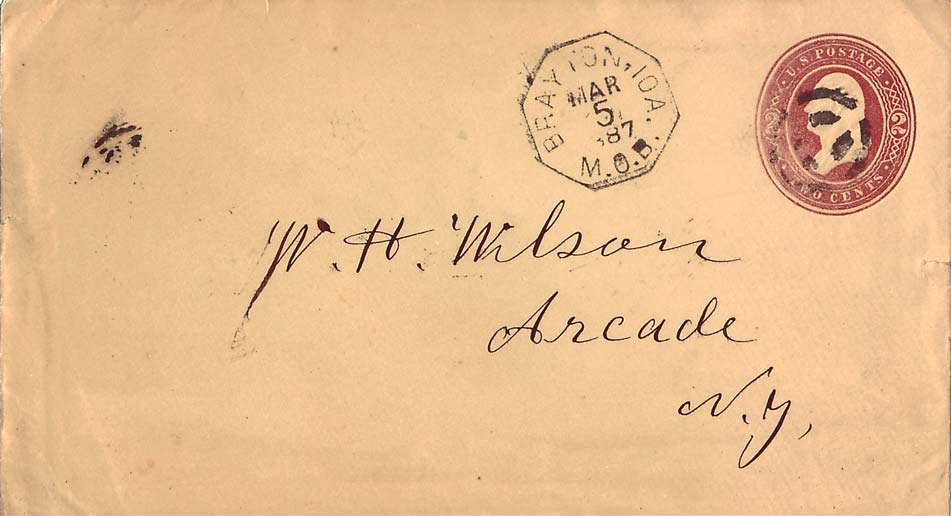 BRAYTON, IOA.
MAR
5
'87
M.O.B.
U.S. POSTAGE
2 2
TWO CENTS
W. H. Wilson
Arcade
N.Y,